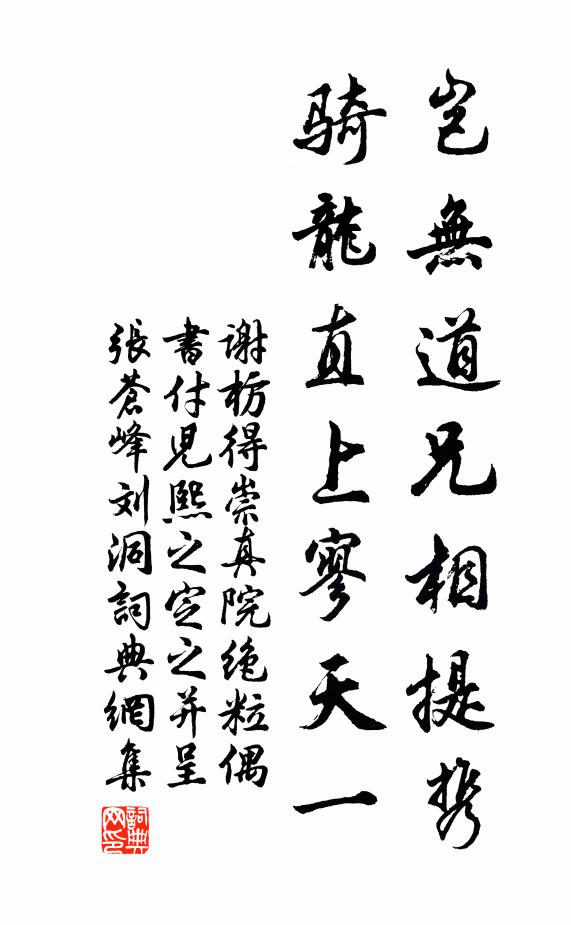 豈無道兄相提携
騎龍直上寥天一
谢枋得崇真院绝粒偶
書付児熙之定之并呈
張蒼峰刘洞詞典網集
詞典网印